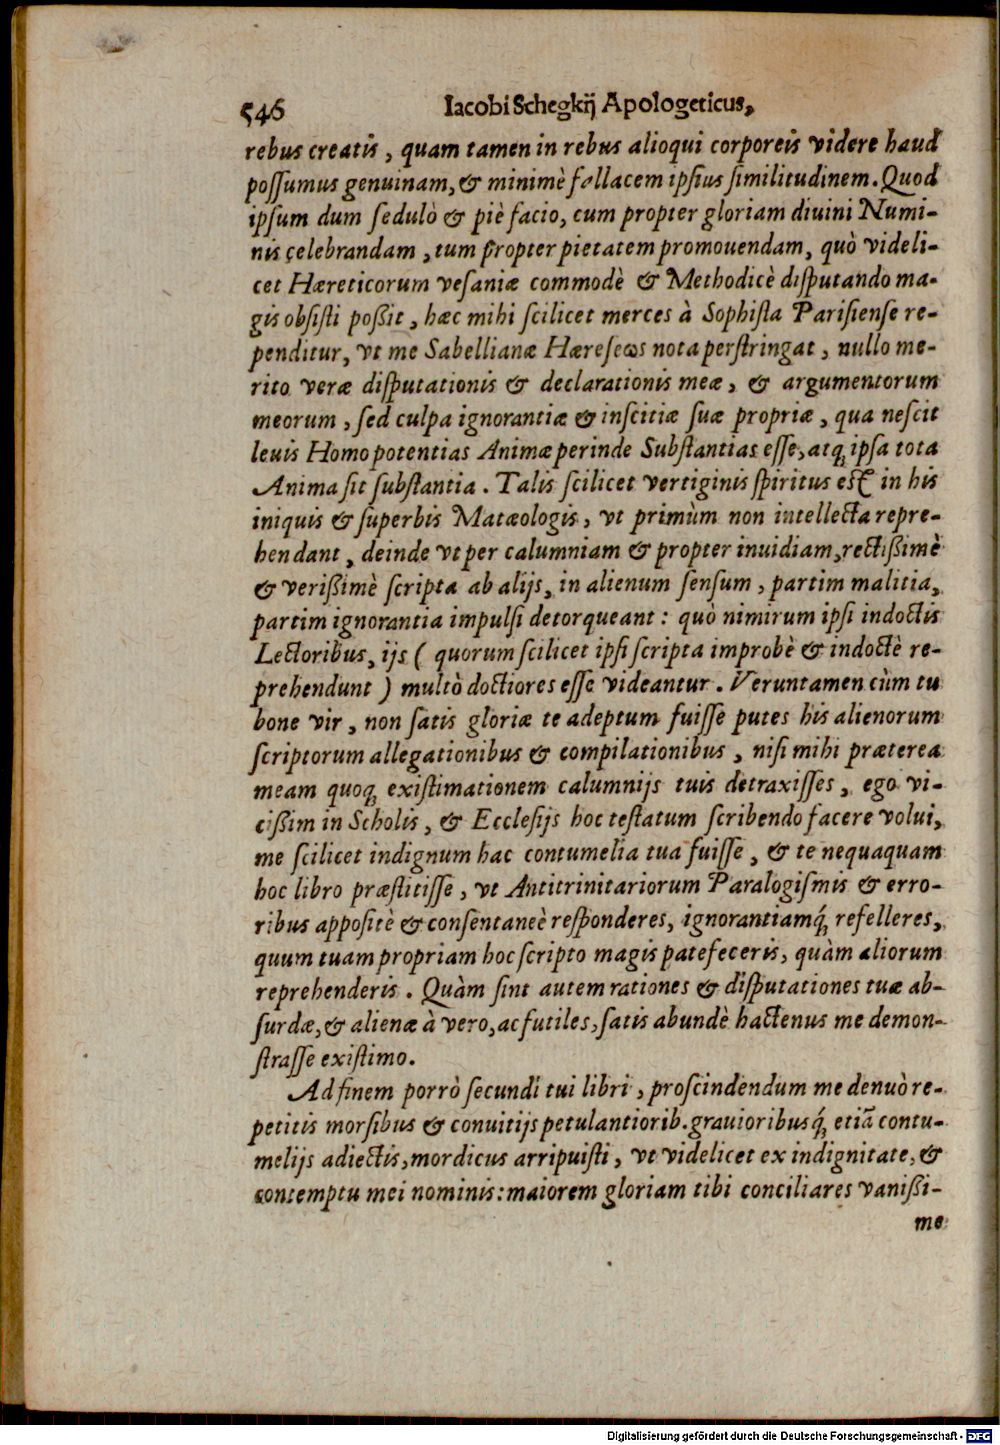 546 Iacobi Schegkij Apologeticus,
rebus creatis, quam tamen in rebus alioqui corporeis videre haud
possumus genuinam, & minimè fallacem ipsius similitudinem. Quod
ipsum dum sedulò & piè facio, cum propter gloriam diuini Numi-
nis celebrandam, tum propter pietatem promouendam, quò videli-
cet Hæreticorum vesaniæ commodè & Methodicè disputando ma-
gis obsisti poßit, hæc mihi scilicet merces à Sophista Parisiense re-
penditur, vt me Sabellianæ Hæreseωs nota perstringat, nullo me-
rito veræ disputationis & declarationis meæ, & argumentorum
meorum, sed culpa ignorantiæ & inscitiæ suæ propriæ, qua nescit
leuis Homo potentias Animæ perinde Substantias esse, atq; ipsa tota
Anima sit substantia. Talis scilicet vertiginis spiritus est in his
iniquis & superbis Matæologis, vt primùm non intellecta repre-
hendant, deinde vt per calumniam & propter inuidiam, rectißimè
& verißimè scripta ab alijs, in alienum sensum, partim malitia,
partim ignorantia impulsi detorqueant: quò nimirum ipsi indoctis
Lectoribus, ijs ( quorum scilicet ipsi scripta improbè & indoctè re-
prehendunt ) multò doctiores esse videantur. Veruntamen cùm tu
bone vir, non satis gloriæ te adeptum fuisse putes his alienorum
scriptorum allegationibus & compilationibus, nisi mihi præterea
meam quoq; existimationem calumnijs tuis detraxisses, ego vi-
cißim in Scholis, & Ecclesijs hoc testatum scribendo facere volui,
me scilicet indignum hac contumelia tua fuisse, & te nequaquam
hoc libro præstitisse, vt Antitrinitariorum Paralogismis & erro-
ribus appositè & consentaneè responderes, ignorantiamq́; refelleres,
quum tuam propriam hoc scripto magis patefeceris, quàm aliorum
reprehenderis. Quàm sint autem rationes & disputationes tuæ ab-
surdæ, & alienæ à vero, ac futiles, satis abundè hactenus me demon-
strasse existimo.
Ad finem porrò secundi tui libri, proscindendum me denuò re-
petitis morsibus & conuitijs petulantiorib. grauioribusq́; etiã contu-
melijs adiectis, mordicus arripuisti, vt videlicet ex indignitate, &
contemptu mei nominis: maiorem gloriam tibi conciliares vanißi-
me
Digitalisierung gefördert durch die Deutsche Forschungsgemeinschaft - DFG